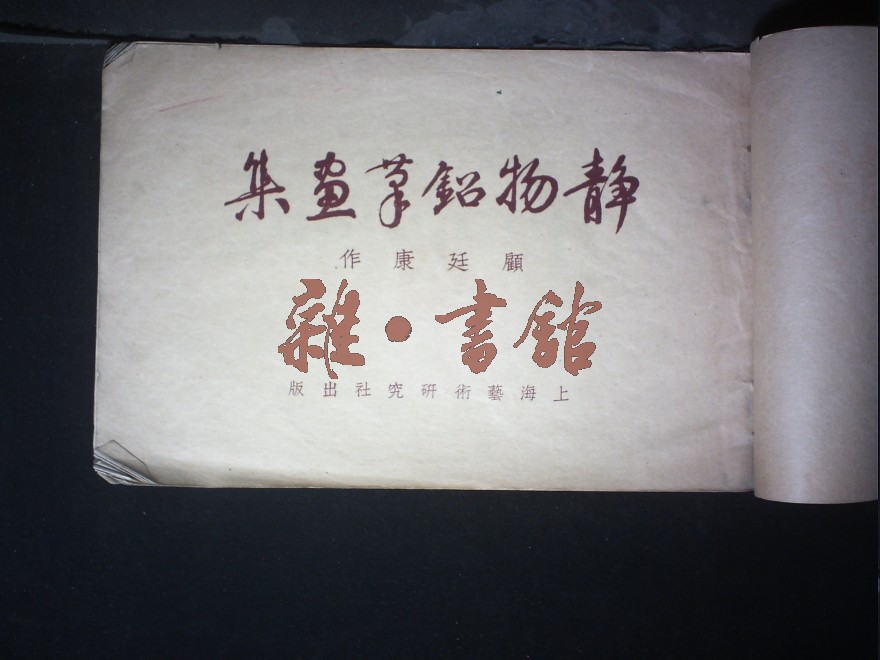 靜物鉛筆畫集
顧廷康作
雜·書館
上海藝術研究社出版